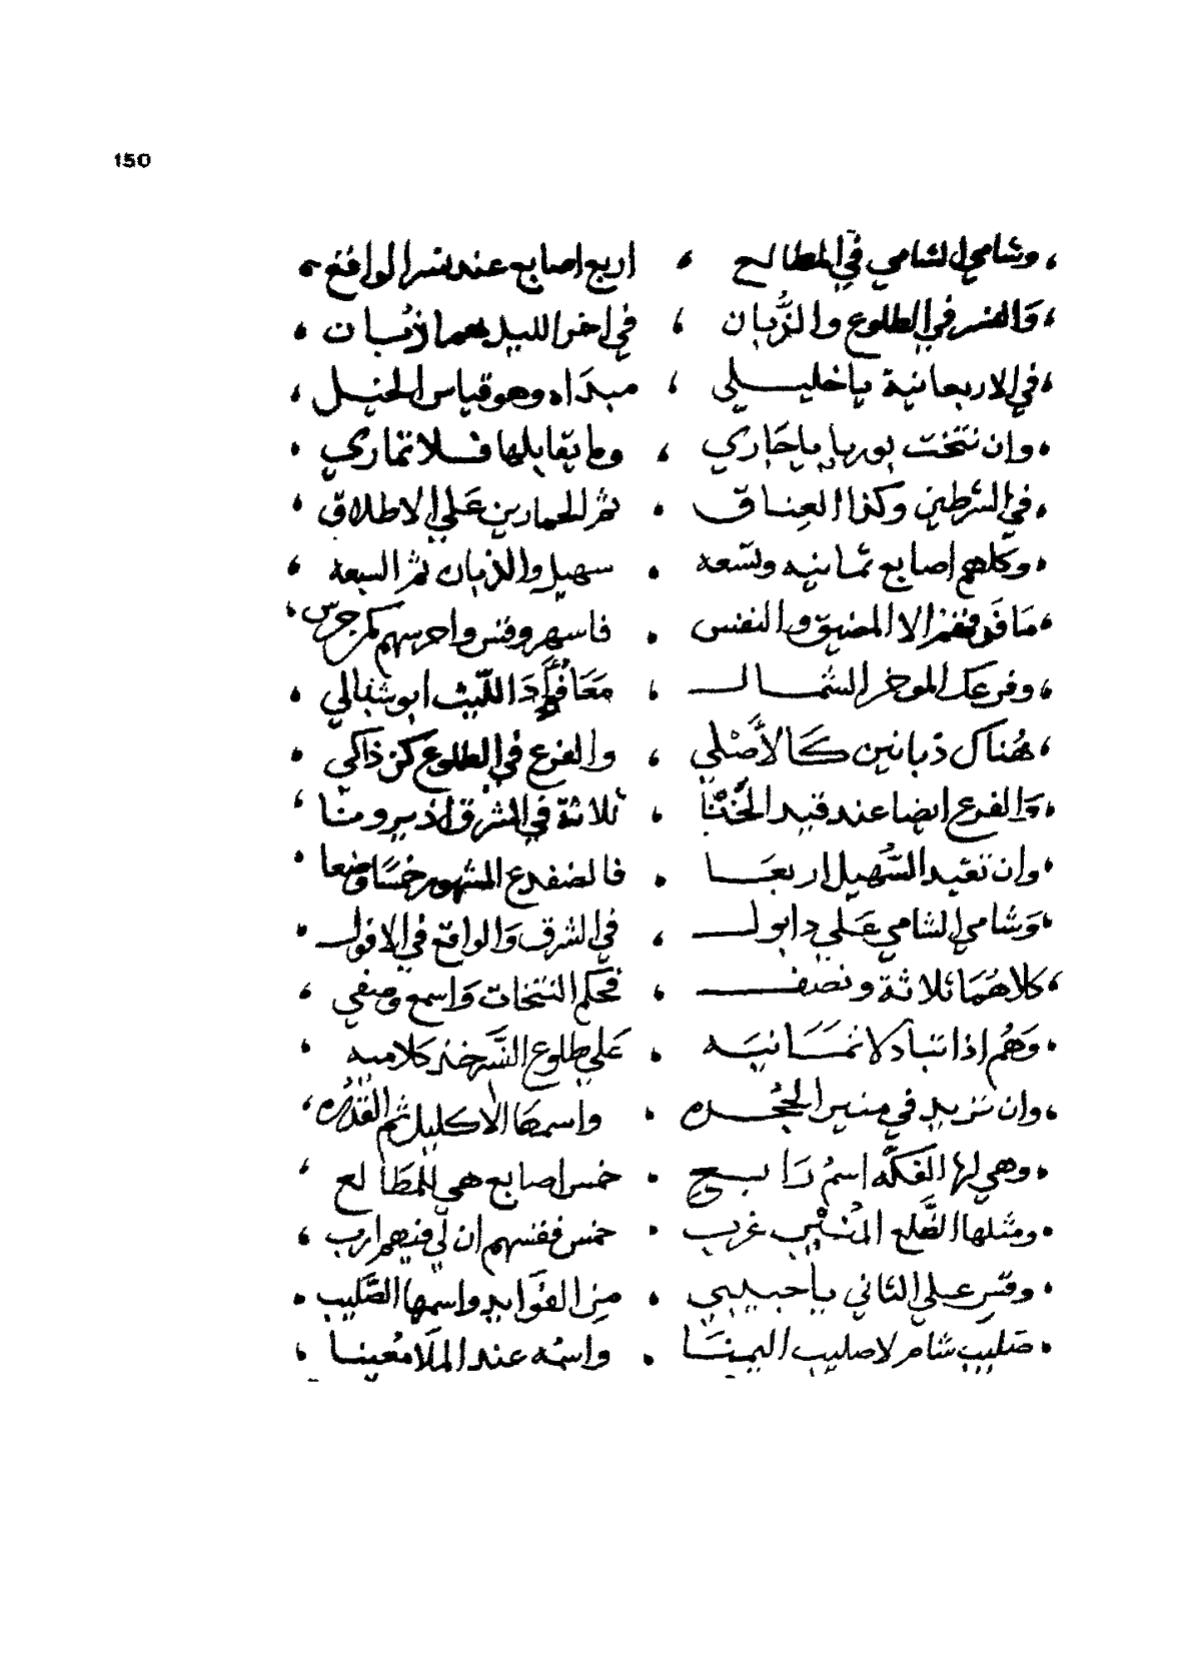 150
وشامي لشامي في المطالع ، اربع اصابع عند نسر الواقع
والنسر في الطلوع والذُّبان ، في اخر الليل هما ذبان
في الاربعانية يا خليلي ، مبداه وهو قياس الخيل
وان نتخت بوربا يا جاري ، وما يقابلها فلا تماري
في الشرطين وكذا العناق . ثم الحمارين علي الاطلاق
وكلهم اصابع ثمانيه وتسعه . سهيل والذبان ثم السبعة
ما فوقهم الا المضيق والنفس . فاسهر وقس واحرسهم كم حرس
وفرعك الموخر الشمال ، معا الليث ابو شبالي
هُناك ذبانين كالأصلي ، والفرع في الطلوع كن ذاكي
والفرع ايضا عند قيد الخنّا ، ثلاثة في الشرق اذ يرومنا
وان تقيد السُّهيل اربعا . فالضفدع المشهور خمسا وضعا
وشامي لشامي علي دابول ، في الشرق والواقع في الافول
كلاهما ثلاثة ونصف . فحكم النتخات واسمع وصفي
وهم اذا تبادلا ثمانيه . علي طلوع النسر خذ كلاميه
وان تزيد في منير الحجره . واسمها الاكليل ثم القدره
وهي لها الفكّه اسم رابع . خمس اصابع هي المطالع
ومثلها الضّلع غرب . خمس فقسهم ان لي فيهم ارب
وقس علي الثاني يا حبيبي . من الفوايد واسمها الصّليب
صليب شام لا صليب اليمنا . واسمه عند الملا معينا